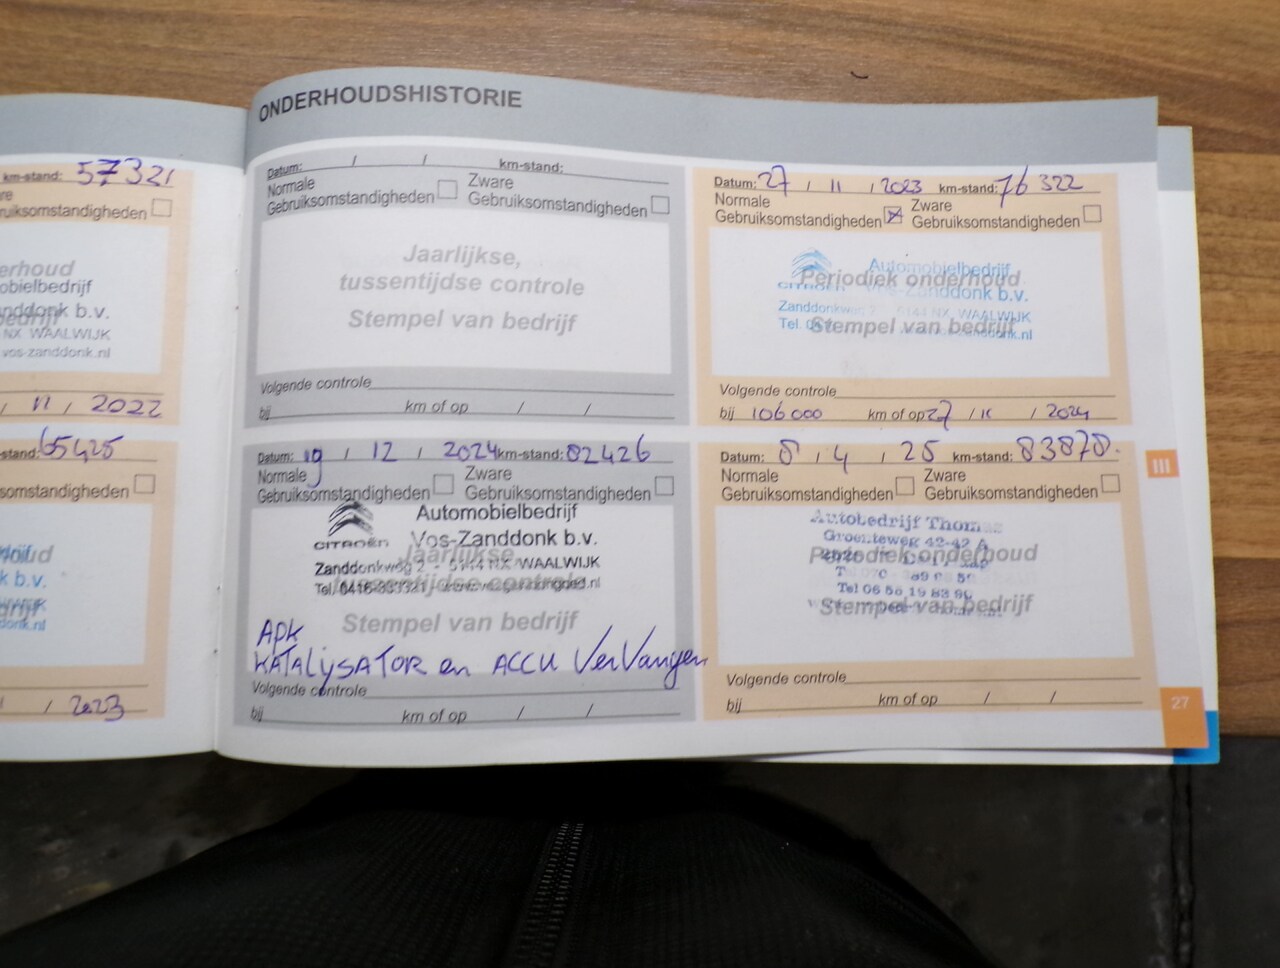 km-stand: 57321
Gebruiksomstandigheden
WAALWIJK
vos-zanddonk.nl
11 / 2022
65425
2023
ONDERHOUDSHISTORIE
Datum: / / km-stand:
Normale Gebruiksomstandigheden
Zware Gebruiksomstandigheden
Jaarlijkse,
tussentijdse controle
Stempel van bedrijf
Volgende controle
bij km of op / /
Datum: 27 / 11 / 2023 km-stand: 76 322
Normale Gebruiksomstandigheden
Zware Gebruiksomstandigheden
CITROËN
Automobielbedrijf
Periodiek onderhoud
Vos-Zanddonk b.v.
Zanddonkweg 2 - 5144 NX WAALWIJK
Tel.
Stempel van bedrijf
Volgende controle
bij 106000 km of op 27 / 11 / 2024
Datum: 19 / 12 / 2024 km-stand: 82426
Normale Gebruiksomstandigheden
Zware Gebruiksomstandigheden
CITROËN
Automobielbedrijf
Vos-Zanddonk b.v.
Jaarlijkse
Zanddonkweg 2 - 5144 NX WAALWIJK
tussentijdse controle
Stempel van bedrijf
APK
KATALYSATOR en ACCU VerVangen
Volgende controle
bij km of op / /
Datum: 8 / 4 / 25 km-stand: 83878.
Normale Gebruiksomstandigheden
Zware Gebruiksomstandigheden
Autobedrijf
Groenteweg 42-42 A
Periodiek onderhoud
Tel 06
Stempel van bedrijf
Volgende controle
bij km of op / /
III
27